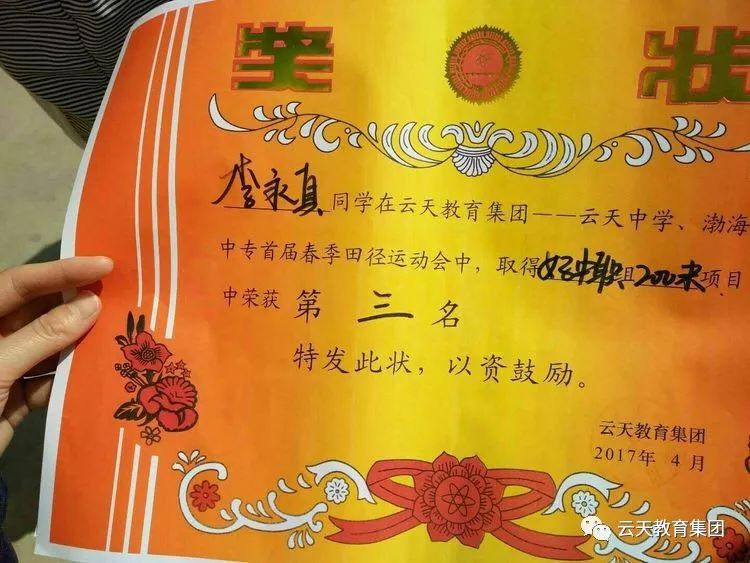 奖 状
李永真同学在云天教育集团——云天中学、渤海
中专首届春季田径运动会中，取得女子中职组200米项目
中荣获 第 三 名
特发此状，以资鼓励。
云天教育集团
2017年 4 月
云天教育集团